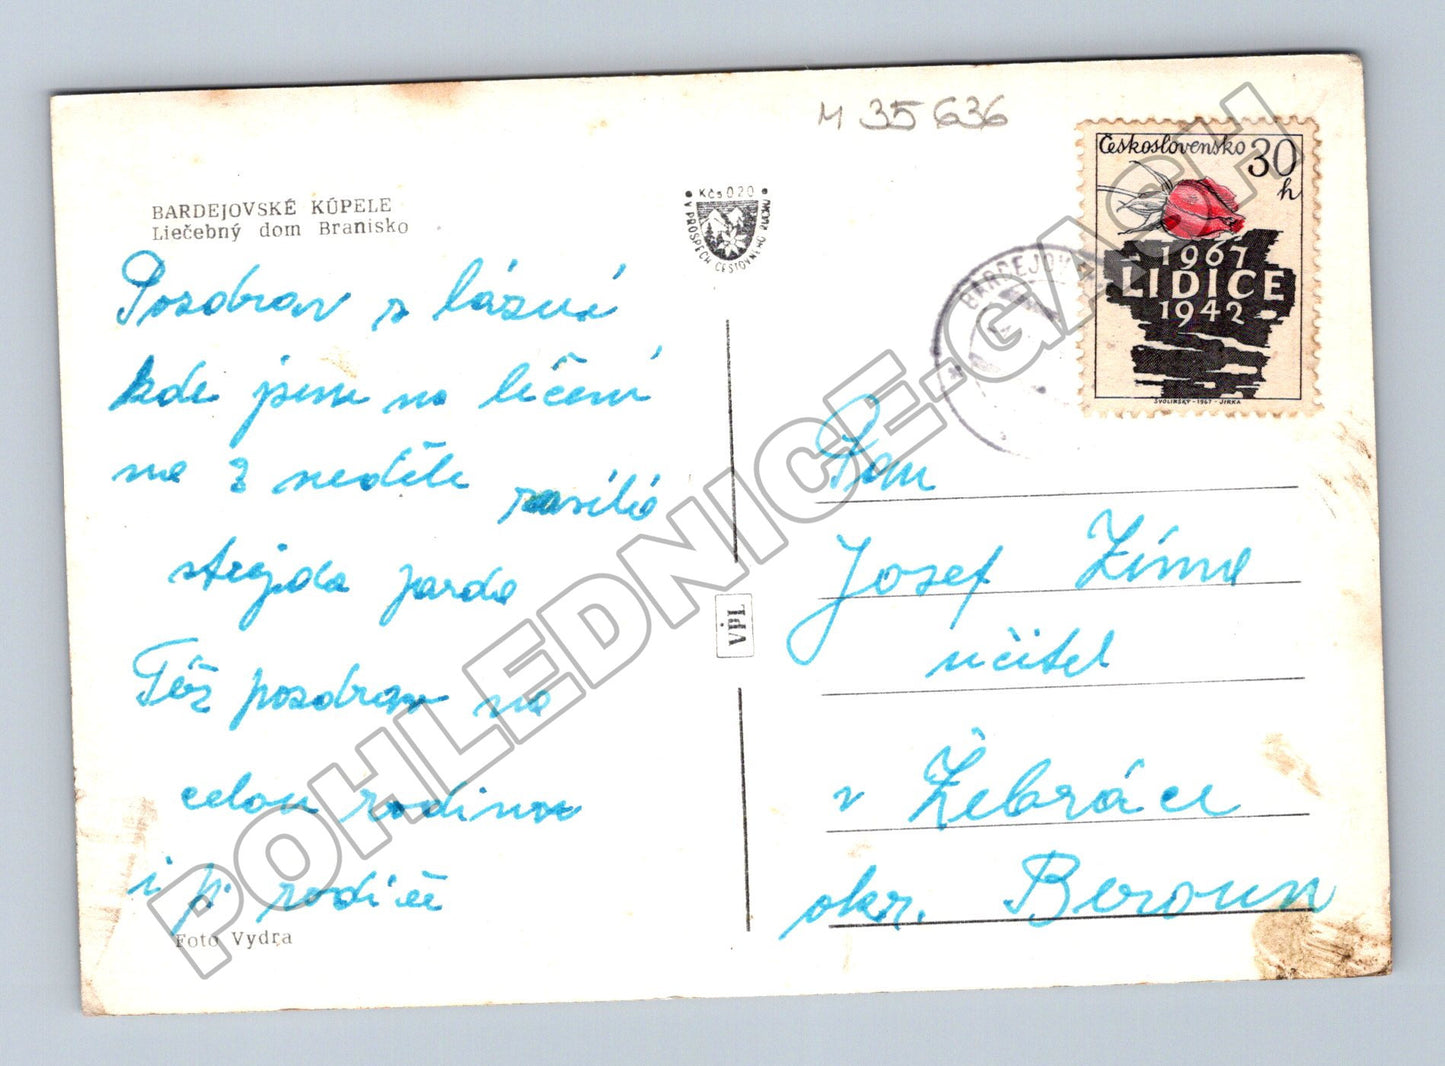 M 35 636
BARDEJOVSKÉ KÚPELE
Liečebný dom Branisko
Kčs 0.20
V PROSPECH CESTOVNÉHO RUCHU
Československo 30 h
1967
LIDICE
1942
SVOLINSKÝ - 1967 - JIRKA
BARDEJOV
Pozdrav z lázní
kde jsem na léčení
na 3 neděle zasílá
strejda Jarda
Též pozdrav na
celou rodinu
i p. rodiče
Foto Vydra
VPL
Pan
Josef Zíma
učitel
v Žebráce
okr. Beroun
POHLEDNICE-GASH